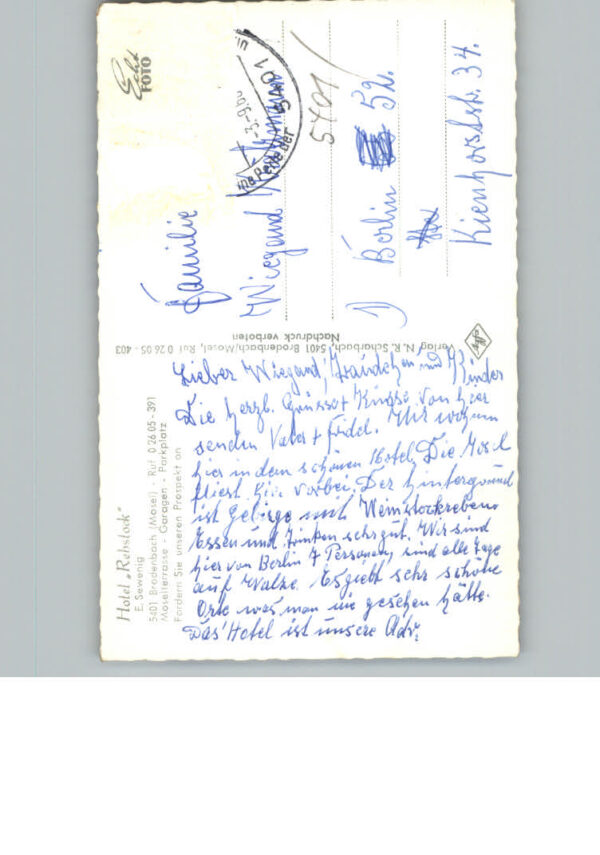 Hotel „Rebstock"
E. Sewenig
5401 Brodenbach (Mosel) - Ruf 0 26 05 - 391
Moselterrasse - Garagen - Parkplatz
Fordern Sie unseren Prospekt an
Lieber Wiegand, Traudchen und Kinder
Die herzl. Grüsse + Küsse von hier
senden Vater + Friedel. Wir wohnen
hier in dem schönen Hotel Die Mosel
fliest hir vorbei. Der hintergrund
ist Gebirge mit Weinstockreben
Essen und Trinken sehr gut. Wir sind
hier von Berlin 7 Personen, sind alle Tage
auf Walze. Es giebt sehr schöne
Orte was man nie gesehen hätte.
Das Hotel ist unsere Adr.
Verlag N. R. Scharbach, 5401 Brodenbach/Mosel, Ruf 0 26 05 - 403
Nachdruck verboten
Agfa
Echt
FOTO
5401
Perle der
5401/
Familie
Wiegand
Berlin 52.
Kienhorststr. 34.